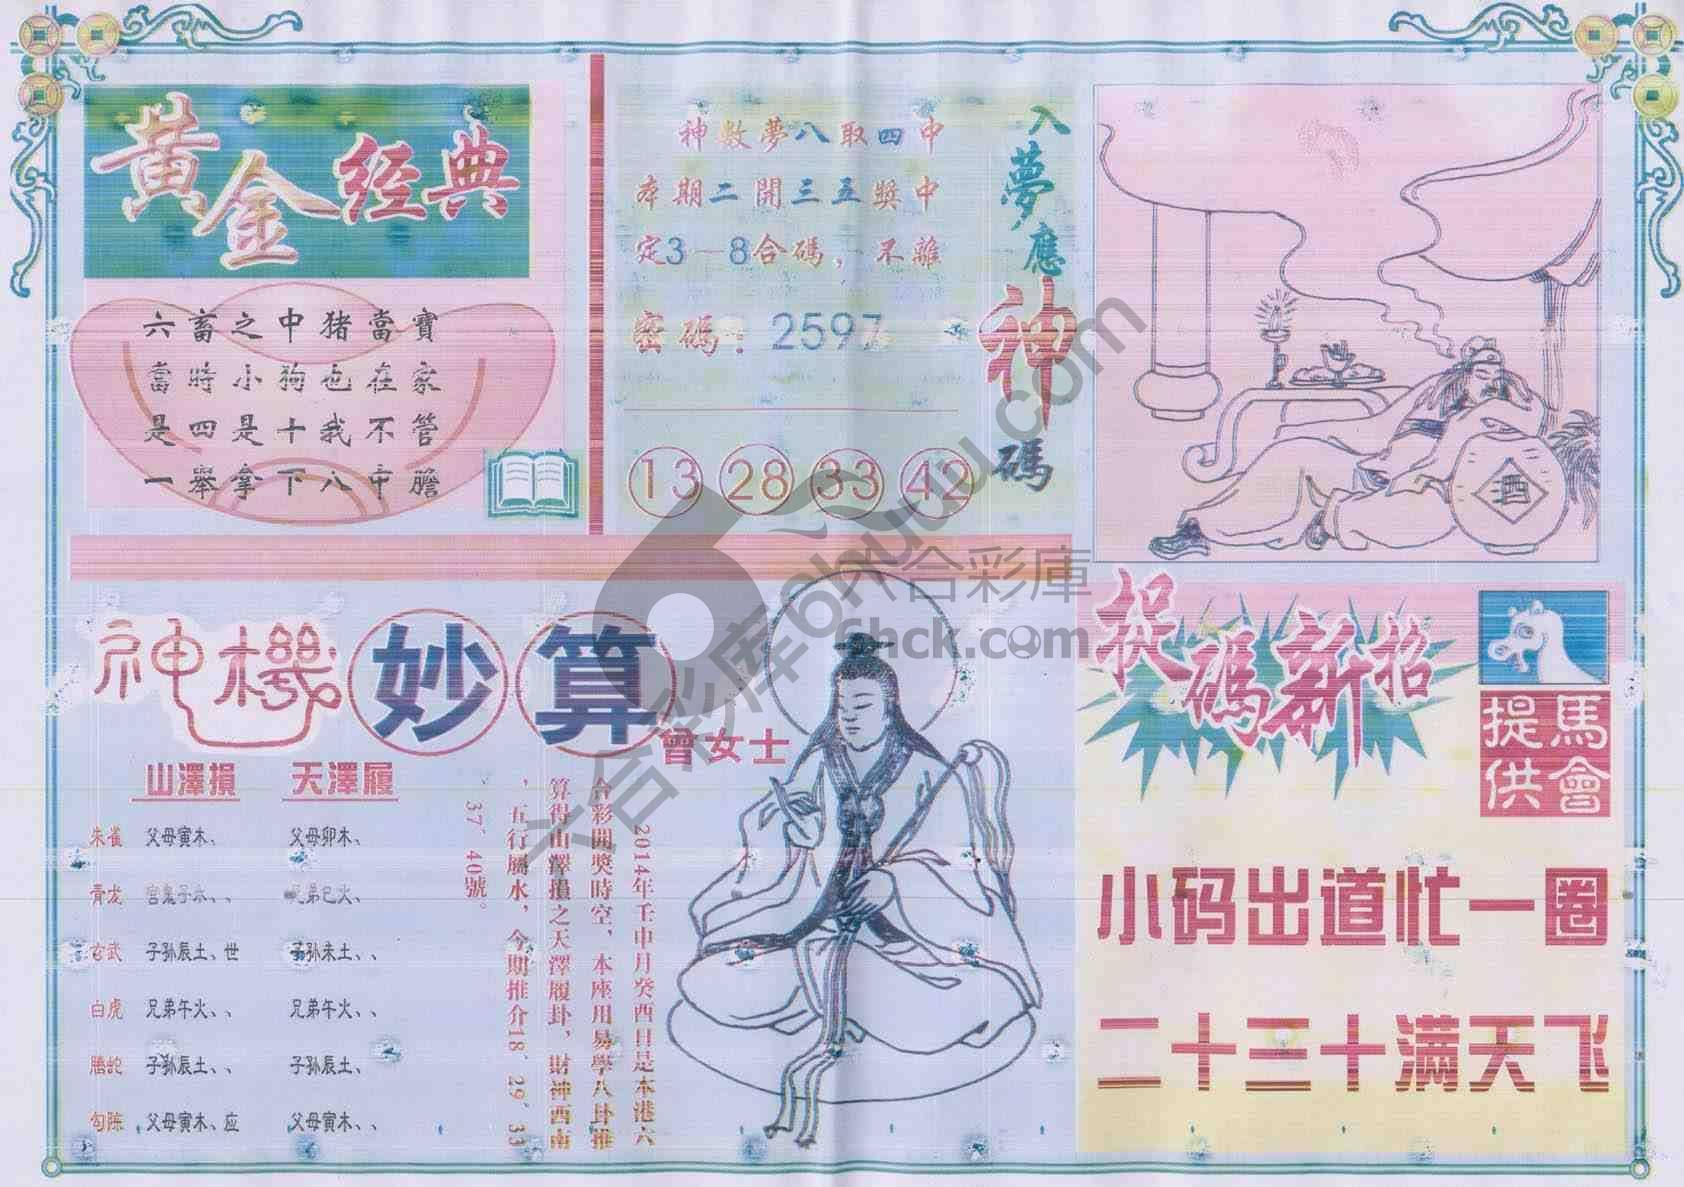 黃金经典
六畜之中猪當寶
當時小狗也在家
是四是十我不管
一舉拿下八中膽
入夢應神碼
神數夢八取四中
本期二開三五獎中
定3—8合碼，不離
密碼：2597
13 28 33 42
酒
神機妙算
曾女士
山澤損 天澤履
朱雀 父母寅木、 父母卯木、
青龙 官鬼子水、、 兄弟巳火、
玄武 子孙辰土、世 子孙未土、、
白虎 兄弟午火、、 兄弟午火、、
腾蛇 子孙辰土、、 子孙辰土、
勾陈 父母寅木、应 父母寅木、、
2014年壬申月癸酉日是本港六
合彩開獎時空，本座用易學八卦推
算得山澤損之天澤履卦，財神西南
，五行屬水，今期推介18、29、33
、37、40號。
捉碼新招
馬會提供
小码出道忙一圈
二十三十满天飞
六合彩库6hhuuu.com
六合彩庫
6hck.com